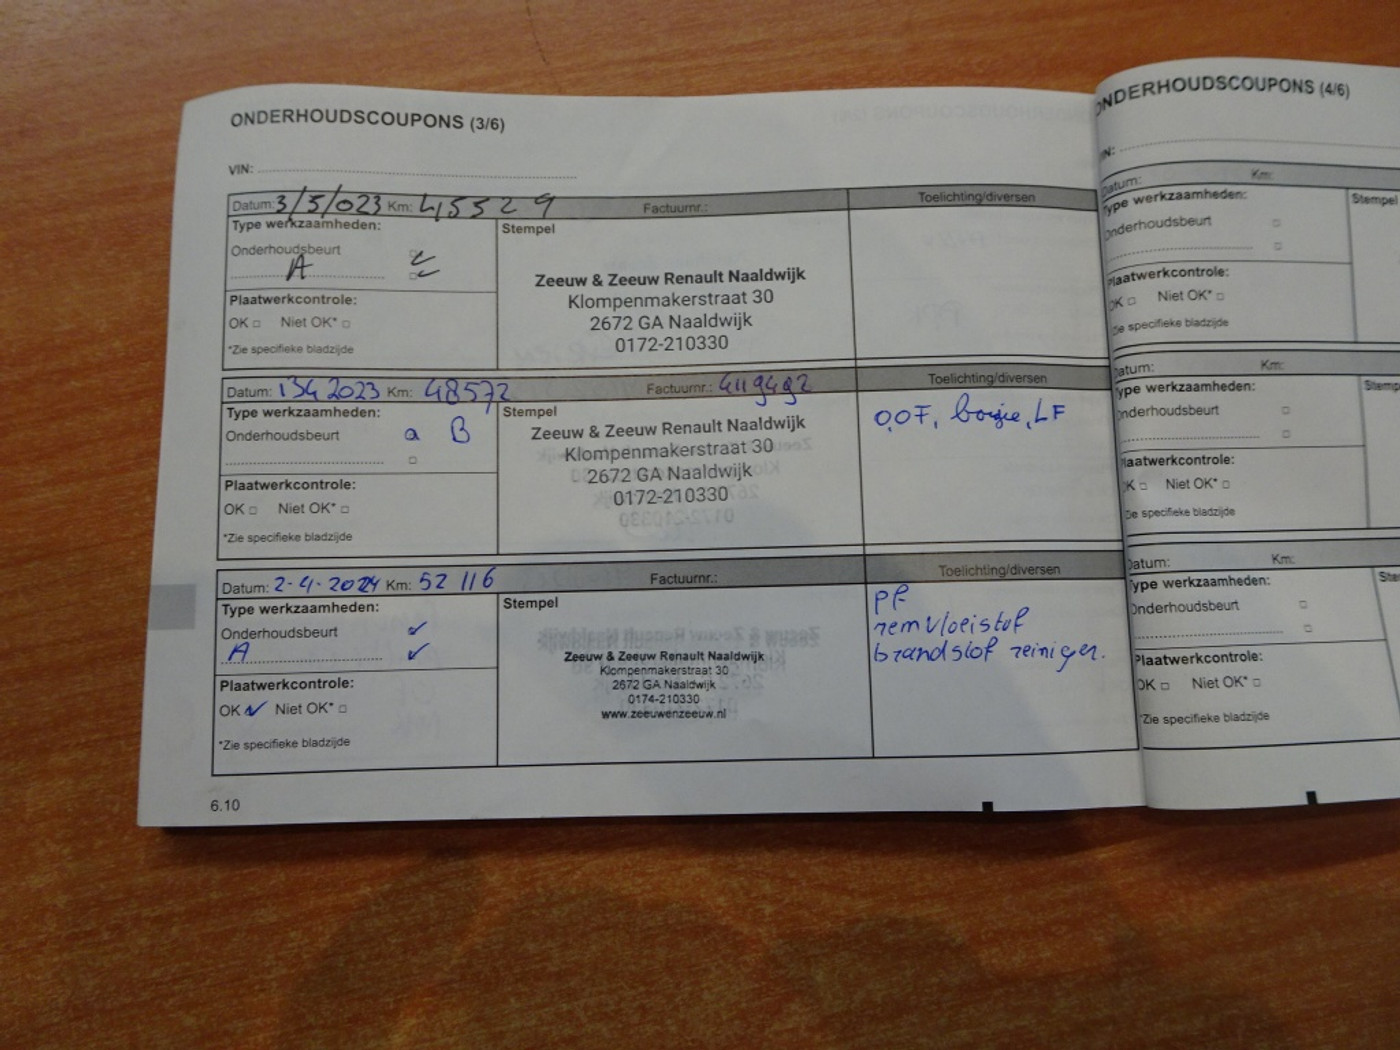 ONDERHOUDSCOUPONS (3/6)
VIN:
Datum: 3/5/023 Km: 45529 Factuurnr.: Toelichting/diversen
Type werkzaamheden:
Onderhoudsbeurt
A
Plaatwerkcontrole:
OK □ Niet OK* □
*Zie specifieke bladzijde
Stempel
Zeeuw & Zeeuw Renault Naaldwijk
Klompenmakerstraat 30
2672 GA Naaldwijk
0172-210330
Datum: 134 2023 Km: 48572 Factuurnr.: 4119492 Toelichting/diversen
Type werkzaamheden:
Onderhoudsbeurt B
Plaatwerkcontrole:
OK □ Niet OK* □
*Zie specifieke bladzijde
Stempel
Zeeuw & Zeeuw Renault Naaldwijk
Klompenmakerstraat 30
2672 GA Naaldwijk
0172-210330
O,OF, bougie, LF
Datum: 2-4-2024 Km: 52 116 Factuurnr.: Toelichting/diversen
Type werkzaamheden:
Onderhoudsbeurt ✓
A ✓
Plaatwerkcontrole:
OK ✓ Niet OK* □
*Zie specifieke bladzijde
Stempel
Zeeuw & Zeeuw Renault Naaldwijk
Klompenmakerstraat 30
2672 GA Naaldwijk
0174-210330
www.zeeuwenzeeuw.nl
pf
remvloeistof
brandstof reiniger.
6.10
ONDERHOUDSCOUPONS (4/6)
VIN:
Datum: Km:
Type werkzaamheden:
Onderhoudsbeurt □
Plaatwerkcontrole:
OK □ Niet OK* □
*Zie specifieke bladzijde
Stempel
Datum: Km:
Type werkzaamheden:
Onderhoudsbeurt □
Plaatwerkcontrole:
OK □ Niet OK* □
*Zie specifieke bladzijde
Stemp
Datum: Km:
Type werkzaamheden:
Onderhoudsbeurt □
Plaatwerkcontrole:
OK □ Niet OK* □
*Zie specifieke bladzijde
Ste